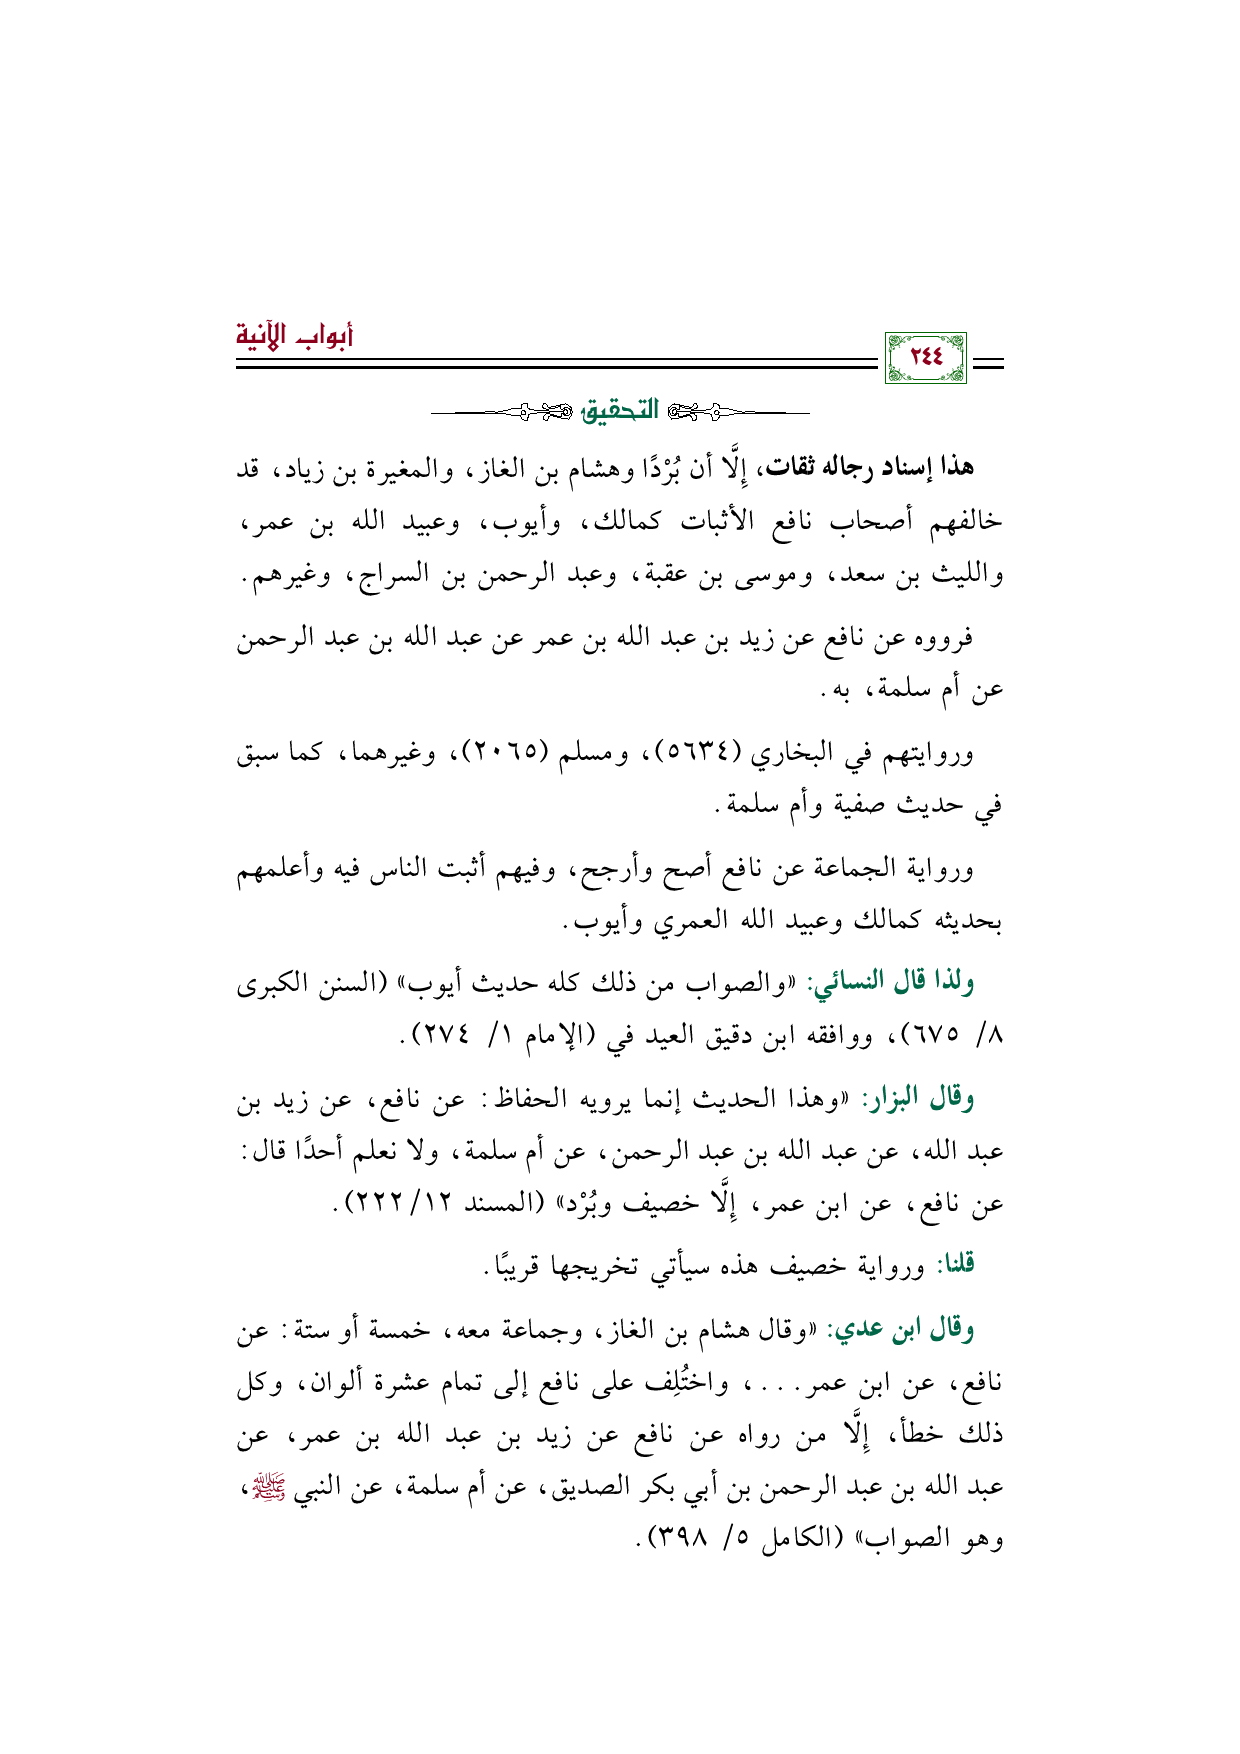 أبواب الآنية
٢٤٤
التحقيق
هذا إسناد رجاله ثقات، إِلَّا أن بُرْدًا وهشام بن الغاز، والمغيرة بن زياد، قد
خالفهم أصحاب نافع الأثبات كمالك، وأيوب، وعبيد الله بن عمر،
والليث بن سعد، وموسى بن عقبة، وعبد الرحمن بن السراج، وغيرهم.
فرووه عن نافع عن زيد بن عبد الله بن عمر عن عبد الله بن عبد الرحمن
عن أم سلمة، به.
وروايتهم في البخاري (٥٦٣٤)، ومسلم (٢٠٦٥)، وغيرهما، كما سبق
في حديث صفية وأم سلمة.
ورواية الجماعة عن نافع أصح وأرجح، وفيهم أثبت الناس فيه وأعلمهم
بحديثه كمالك وعبيد الله العمري وأيوب.
ولذا قال النسائي: «والصواب من ذلك كله حديث أيوب» (السنن الكبرى
٨/ ٦٧٥)، ووافقه ابن دقيق العيد في (الإمام ١/ ٢٧٤).
وقال البزار: «وهذا الحديث إنما يرويه الحفاظ: عن نافع، عن زيد بن
عبد الله، عن عبد الله بن عبد الرحمن، عن أم سلمة، ولا نعلم أحدًا قال:
عن نافع، عن ابن عمر، إِلَّا خصيف وبُرْد» (المسند ١٢/ ٢٢٢).
قلنا: ورواية خصيف هذه سيأتي تخريجها قريبًا.
وقال ابن عدي: «وقال هشام بن الغاز، وجماعة معه، خمسة أو ستة: عن
نافع، عن ابن عمر...، واختُلِف على نافع إلى تمام عشرة ألوان، وكل
ذلك خطأ، إِلَّا من رواه عن نافع عن زيد بن عبد الله بن عمر، عن
عبد الله بن عبد الرحمن بن أبي بكر الصديق، عن أم سلمة، عن النبي ﷺ،
وهو الصواب» (الكامل ٥/ ٣٩٨).